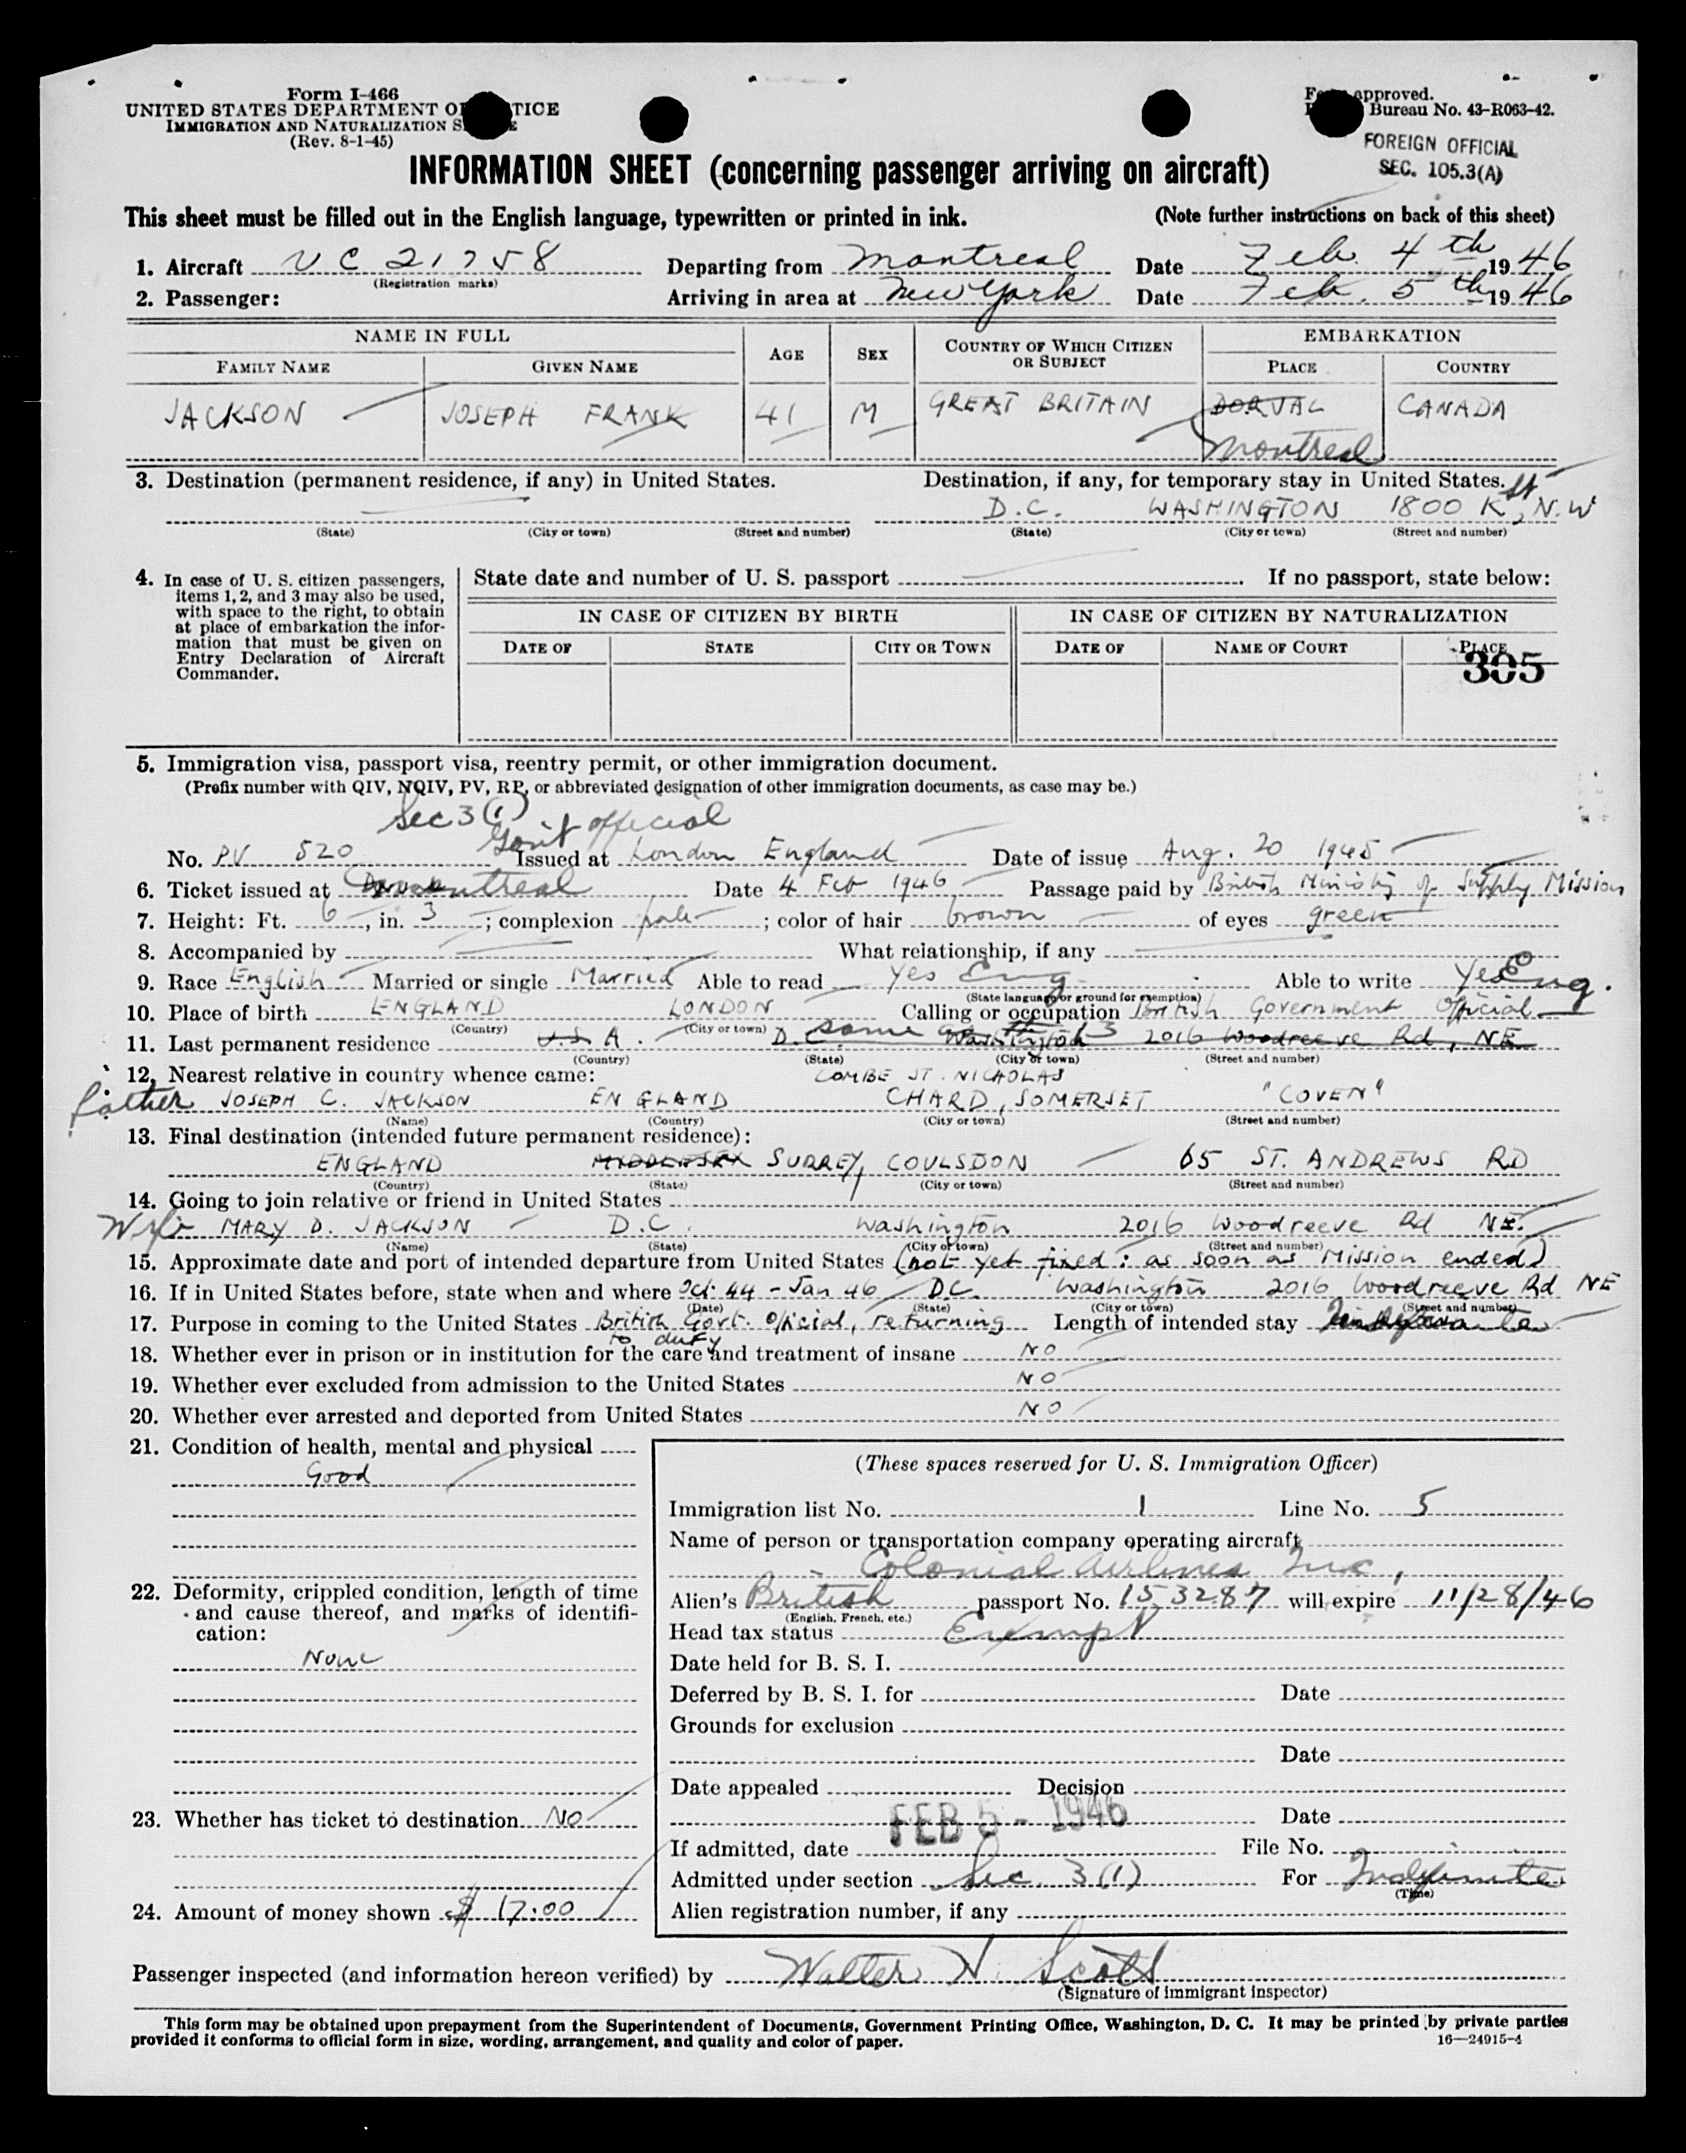 Form I-466
UNITED STATES DEPARTMENT OF JUSTICE
IMMIGRATION AND NATURALIZATION SERVICE
(Rev. 8-1-45)
Form approved.
Bureau No. 43-R063-42.
FOREIGN OFFICIAL
SEC. 105.3(A)
INFORMATION SHEET (concerning passenger arriving on aircraft)
This sheet must be filled out in the English language, typewritten or printed in ink. (Note further instructions on back of this sheet)
1. Aircraft NC 21758 Departing from Montreal Date Feb. 4th 1946
(Registration marks)
2. Passenger: Arriving in area at New York Date Feb. 5th 1946
NAME IN FULL AGE SEX COUNTRY OF WHICH CITIZEN OR SUBJECT EMBARKATION
FAMILY NAME GIVEN NAME PLACE COUNTRY
JACKSON JOSEPH FRANK 41 M GREAT BRITAIN DORVAL CANADA
Montreal
3. Destination (permanent residence, if any) in United States. Destination, if any, for temporary stay in United States.
D.C. WASHINGTON 1800 K St, N.W
(State) (City or town) (Street and number) (State) (City or town) (Street and number)
4. In case of U. S. citizen passengers, items 1, 2, and 3 may also be used, with space to the right, to obtain at place of embarkation the information that must be given on Entry Declaration of Aircraft Commander.
State date and number of U. S. passport If no passport, state below:
IN CASE OF CITIZEN BY BIRTH IN CASE OF CITIZEN BY NATURALIZATION
DATE OF STATE CITY OR TOWN DATE OF NAME OF COURT PLACE
305
5. Immigration visa, passport visa, reentry permit, or other immigration document.
(Prefix number with QIV, NQIV, PV, RP, or abbreviated designation of other immigration documents, as case may be.)
Sec 3(1)
Gov't official
No. PV 520 Issued at London England Date of issue Aug. 20 1945
6. Ticket issued at Montreal Date 4 Feb 1946 Passage paid by British Ministry of Supply Mission
7. Height: Ft. 6, in. 3; complexion pale; color of hair brown of eyes green
8. Accompanied by What relationship, if any
9. Race English Married or single Married Able to read Yes Eng Able to write Yes Eng.
(State language or ground for exemption)
10. Place of birth ENGLAND LONDON Calling or occupation British Government Official
(Country) (City or town)
11. Last permanent residence U.S.A. D.C. same as # 13 Washington 2016 Woodreeve Rd, NE
(Country) (State) (City or town) (Street and number)
12. Nearest relative in country whence came: COMBE ST. NICHOLAS
father JOSEPH C. JACKSON ENGLAND CHARD, SOMERSET "COVEN"
(Name) (Country) (City or town) (Street and number)
13. Final destination (intended future permanent residence):
ENGLAND MIDDLESEX SURREY, COULSDON 65 ST. ANDREWS RD
(Country) (State) (City or town) (Street and number)
14. Going to join relative or friend in United States
Wife MARY D. JACKSON D.C. Washington 2016 Woodreeve Rd NE.
(Name) (State) (City or town) (Street and number)
15. Approximate date and port of intended departure from United States (not yet fixed: as soon as Mission ended)
16. If in United States before, state when and where Oct 44 - Jan 46 D.C. Washington 2016 Woodreeve Rd NE
(Date) (State) (City or town) (Street and number)
17. Purpose in coming to the United States British Govt. Official, returning to duty Length of intended stay
18. Whether ever in prison or in institution for the care and treatment of insane NO
19. Whether ever excluded from admission to the United States NO
20. Whether ever arrested and deported from United States NO
21. Condition of health, mental and physical
Good
22. Deformity, crippled condition, length of time and cause thereof, and marks of identification:
None
23. Whether has ticket to destination NO
24. Amount of money shown $ 17.00
(These spaces reserved for U. S. Immigration Officer)
Immigration list No. 1 Line No. 5
Name of person or transportation company operating aircraft
Colonial Airlines Inc,
Alien's British passport No. 153287 will expire 11/28/46
(English, French, etc.)
Head tax status Exempt
Date held for B. S. I.
Deferred by B. S. I. for Date
Grounds for exclusion
Date
Date appealed Decision
Date
If admitted, date FEB 5 - 1946 File No.
Admitted under section Sec. 3(1) For Indefinite
(Time)
Alien registration number, if any
Passenger inspected (and information hereon verified) by Walter N. Scott
(Signature of immigrant inspector)
This form may be obtained upon prepayment from the Superintendent of Documents, Government Printing Office, Washington, D. C. It may be printed by private parties
provided it conforms to official form in size, wording, arrangement, and quality and color of paper. 16—24915-4